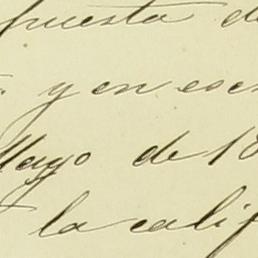 puesta de
y en esc
Mayo de 18
la calif